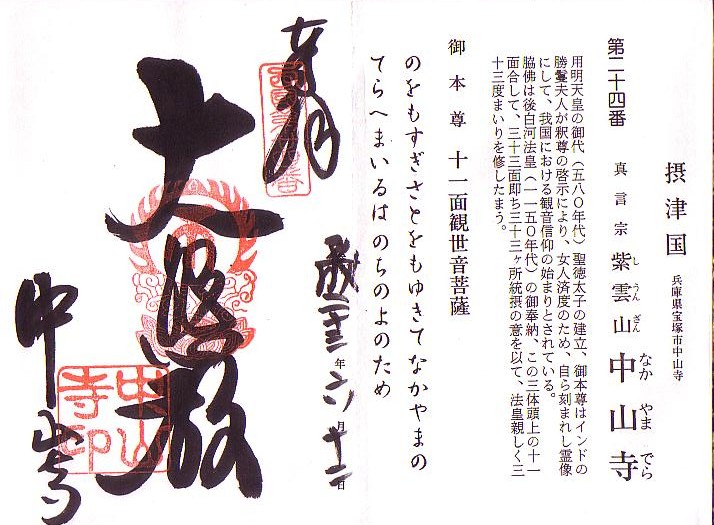 摂津国
兵庫県宝塚市中山寺
第二十四番
真言宗 紫雲山 中山寺
し うん ざん なか やま でら
用明天皇の御代（五八〇年代）聖徳太子の建立、御本尊はインドの
勝鬘夫人が釈尊の啓示により、女人済度のため、自ら刻まれし霊像
にして、我国における観音信仰の始まりとされている。
脇佛は後白河法皇（一一五〇年代）の御奉納、この三体頭上の十一
面合して、三十三面即ち三十三ヶ所統摂の意を以て、法皇親しく三
十三度まいりを修したまう。
御本尊 十一面観世音菩薩
のをもすぎさとをもゆきてなかやまの
てらへまいるは のちのよのため
奉拝
年 六月 十二日
大悲殿
中山寺
中山寺印